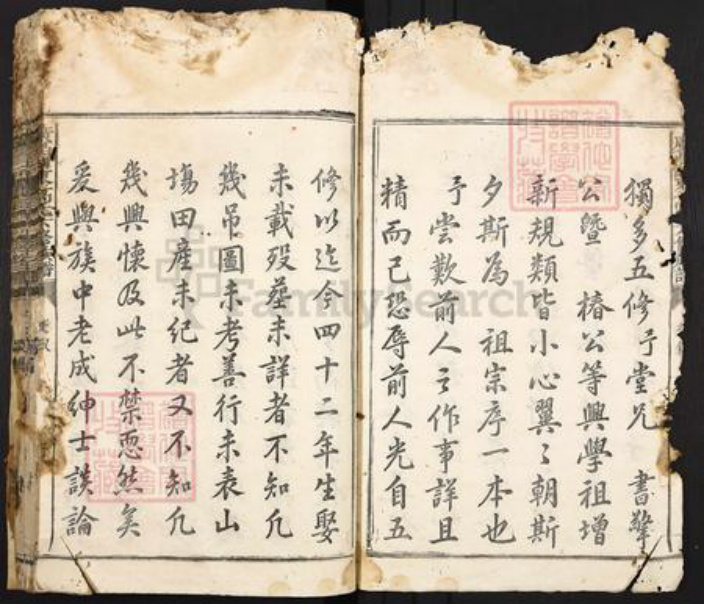 獨多五修予堂兄　書擎
公暨　椿公等興學祖增
新規類皆小心翼〻朝斯
夕斯為　祖宗序一本也
予嘗歎前人之作事詳且
精而已恐辱前人光自五
修以迄今四十二年生娶
未載歿塟未詳者不知凢
幾吊圖未考善行未表山
塲田產未紀者又不知凢
幾興懷及此不禁恧然矣
爰與族中老成紳士談論
FamilySearch